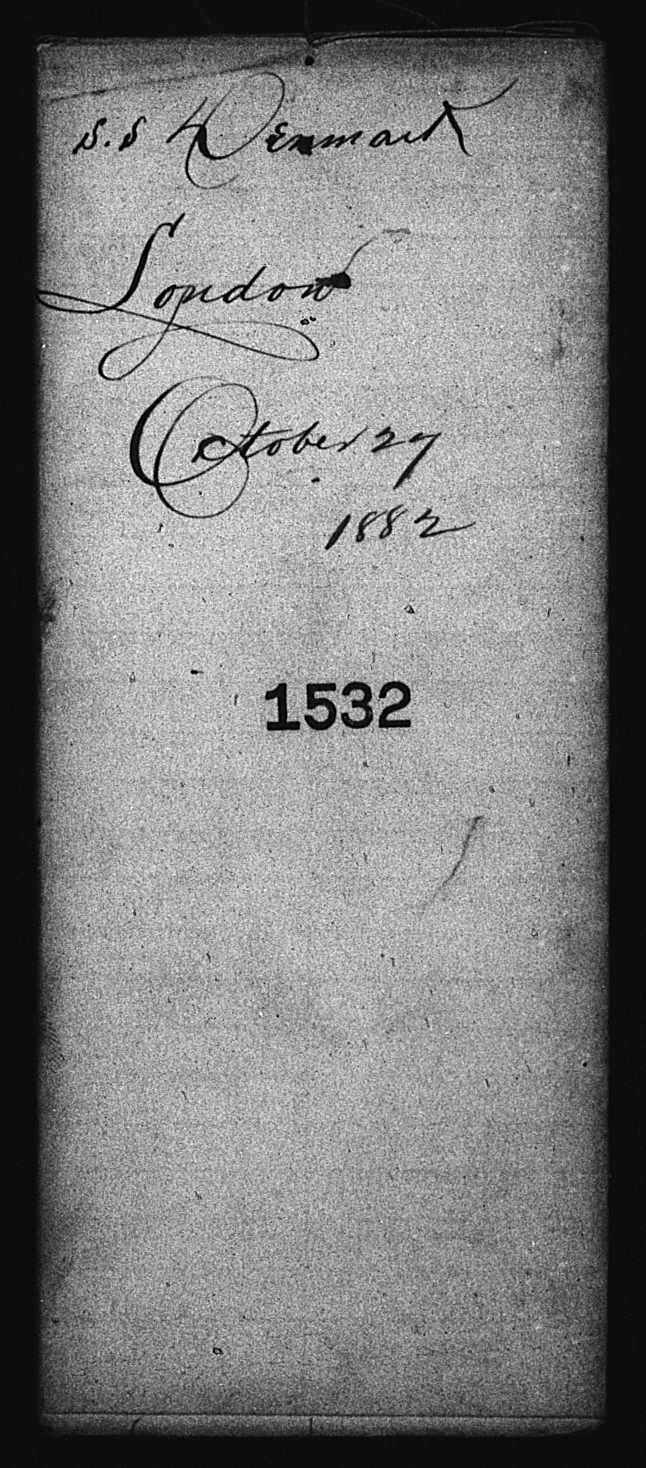 S.S Denmark
London
October 27
1882
1532